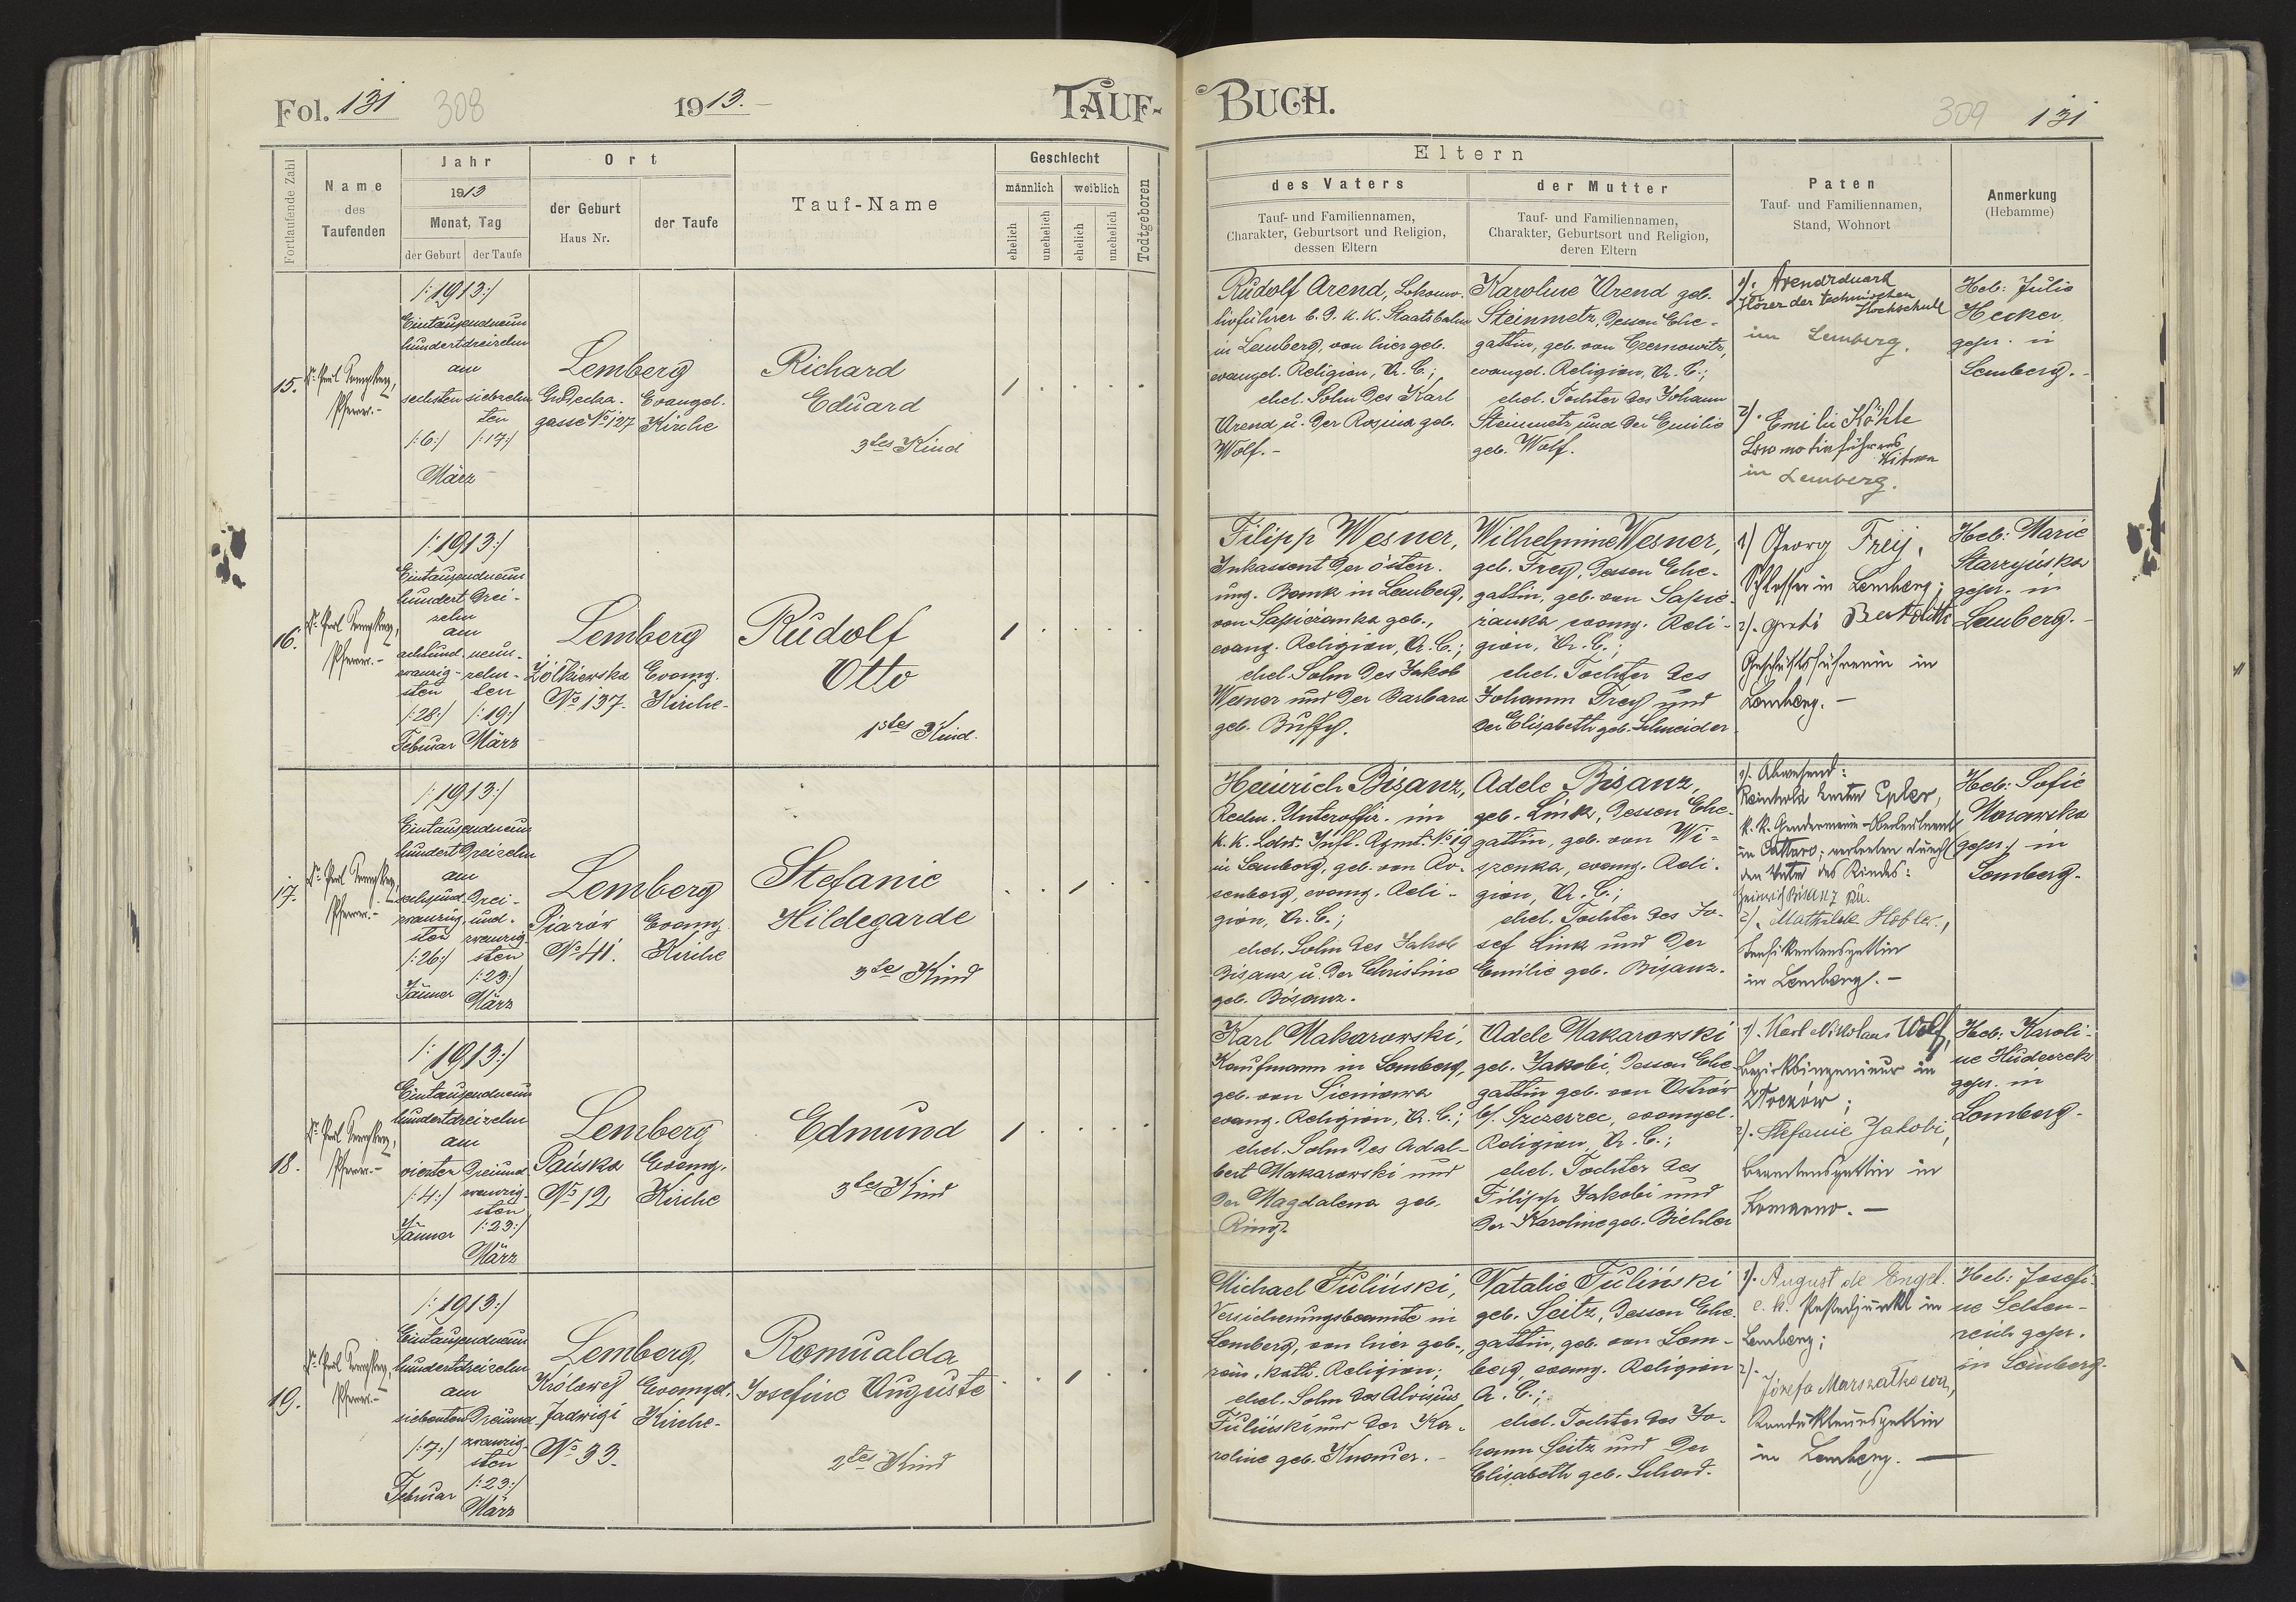 Fol. 131 308 1913. TAUF-
BUCH. 309 131
Fortlaufende Zahl
Name
des
Taufenden
Jahr
1913
Monat, Tag
der Geburt der Taufe
Ort
der Geburt
Haus Nr.
der Taufe
Tauf-Name
Geschlecht
männlich weiblich
ehelich unehelich ehelich unehelich
Todtgeboren
Eltern
des Vaters
Tauf- und Familiennamen,
Charakter, Geburtsort und Religion,
dessen Eltern
der Mutter
Tauf- und Familiennamen,
Charakter, Geburtsort und Religion,
deren Eltern
Paten
Tauf- und Familiennamen,
Stand, Wohnort
Anmerkung
(Hebamme)
15.
Pfarrer.-
/:1913:/
Eintausendneun
hundertdreizehn
am
sechsten
/:6:/
siebzehn
ten
/:17:/
März
Lemberg
gasse No 127
Evangel.
Kirche
Richard
Eduard
3tes Kind
1 . . . .
Rudolf Arend, Lokomo-
tivführer b. d. k. k. Staatsbahn
in Lemberg, von hier geb.
evangel. Religion, A. C.;
ehel. Sohn des Karl
Arend u. der Rosina geb.
Wolf.-
Karoline Arend geb.
Steinmetz, dessen Ehe-
gattin, geb. von Czernowitz,
evangel. Religion, A. C.;
ehel. Tochter des Johann
Steinmetz und der Emilie
geb. Wolf.
1/. Arend Eduard
Hörer der technischen
Hochschule
in Lemberg.
2/. Emilie Köhle
Lokomotivführers
Witwe
in Lemberg.
Heb: Julie
Hecker
gepr. in
Lemberg.-
16.
Pfarrer.-
/:1913:/
Eintausendneun
hundert drei-
zehn
am
achtund-
zwanzig-
sten
/:28:/
Februar
neun-
zehn-
ten
/:19:/
März
Lemberg
Żółkiewska
No 137.
Evang.
Kirche-
Rudolf
Otto
1stes Kind.
1 . . . .
Filipp Wesner,
Inkassent der österr.
ung. Bank in Lemberg,
von Sapieżanka geb.,
evang. Religion, A. C.;
ehel. Sohn des Jakob
Wesner und der Barbara
geb. Buffy.
Wilhelmine Wesner,
geb. Frey, dessen Ehe-
gattin, geb. von Sapie-
żanka evang. Reli-
gion, A. C.;
ehel. Tochter des
Johann Frey und
der Elisabeth geb. Schneider
1/ Georg Frey,
Schlosser in Lemberg;
2/.
Geschäftsführerin in
Lemberg.-
Heb: Marie
Starzyńska
gepr. in
Lemberg.-
17.
Pfarrer.-
/:1913:/
Eintausendneun
hundert dreizehn
am
sechsund-
zwanzig
sten
/:26:/
Jänner
drei-
und-
zwanzig
sten
/:23:/
März
Lemberg
Piarów
No 41.
Evang.
Kirche
Stefanie
Hildegarde
3tes Kind
. . 1 . .
Heinrich Bisanz,
Rechn. Unteroffiz. im
k. k. Ldw. Inft. Rgmt. No 19
in Lemberg, geb. von Ro-
senberg, evang. Reli-
gion, A. C.;
ehel. Sohn des Jakob
Bisanz u. der Christine
geb. Bisanz.
Adele Bisanz
geb. Link, dessen Ehe-
gattin, geb. von Wi-
szenka, evang. Reli-
gion, A. C.;
ehel. Tochter des Jo-
sef Link und der
Emilie geb. Bisanz.
1/. Abwesend:
Epler,
k. k. Gendarmerie-Oberleutnant
in Cattaro; vertreten durch
den Vater des Kindes:
Heinrich Bisanz
2/. Mathilde
in Lemberg.-
Heb: Sofie
Morawska
gepr. in
Lemberg.
18.
Pfarrer.-
/:1913:/
Eintausendneun
hundertdreizehn
am
vierten
/:4:/
Jänner
dreiund
zwanzig-
sten
/:23:/
März
Lemberg
Pańska
No 12
Evang.
Kirche
Edmund
3tes Kind
1 . . . .
Karl Makarowski,
Kaufmann in Lemberg,
geb. von Sieniawa
evang. Religion, A. C.;
ehel. Sohn des Adal-
bert Makarowski und
der Magdalena geb.
Ring.
Adele Makarowski
geb. Jakobi, dessen Ehe
gattin geb. von Ostrów
b/. Szczerzec, evangel.
Religion, A. C.;
ehel. Tochter des
Filipp Jakobi und
der Karoline geb. Bichler
1/. Karl Nikolaus Wolf,
Bezirksingenieur in
Złoczów;
2/. Stefanie Jakobi,
Beamtensgattin in
Komarno.-
Heb: Karoli-
ne Hudeczek
gepr. in
Lemberg-
19.
Pfarrer.-
/:1913:/
Eintausendneun
hundertdreizehn
am
siebenten
/:7:/
Februar
dreiund
zwanzig-
sten
/:23:/
März
Lemberg
Królowej
Jadwigi
No 33.
Evangel.
Kirche-
Romualda
Josefine Auguste
2tes Kind
. . 1 . .
Michael Tuliński,
Versicherungsbeamte in
Lemberg, von hier geb.,
röm. kath. Religion;
ehel. Sohn des Aloisius
Tuliński und der Ka-
roline geb. Knauer.-
Natalie Tuliński
geb. Seitz, dessen Ehe-
gattin, geb. von Lem-
berg, evang. Religion
A. C.;
ehel. Tochter des Jo-
hann Seitz und der
Elisabeth geb. Schad.
1/. August de Engel.
c. k. Postadjunkt in
Lemberg;
2/.
Józefa Marszałkowa,
Kondukteursgattin
in Lemberg.-
Heb: Josefi-
ne Selten-
reich gepr.
in Lemberg-